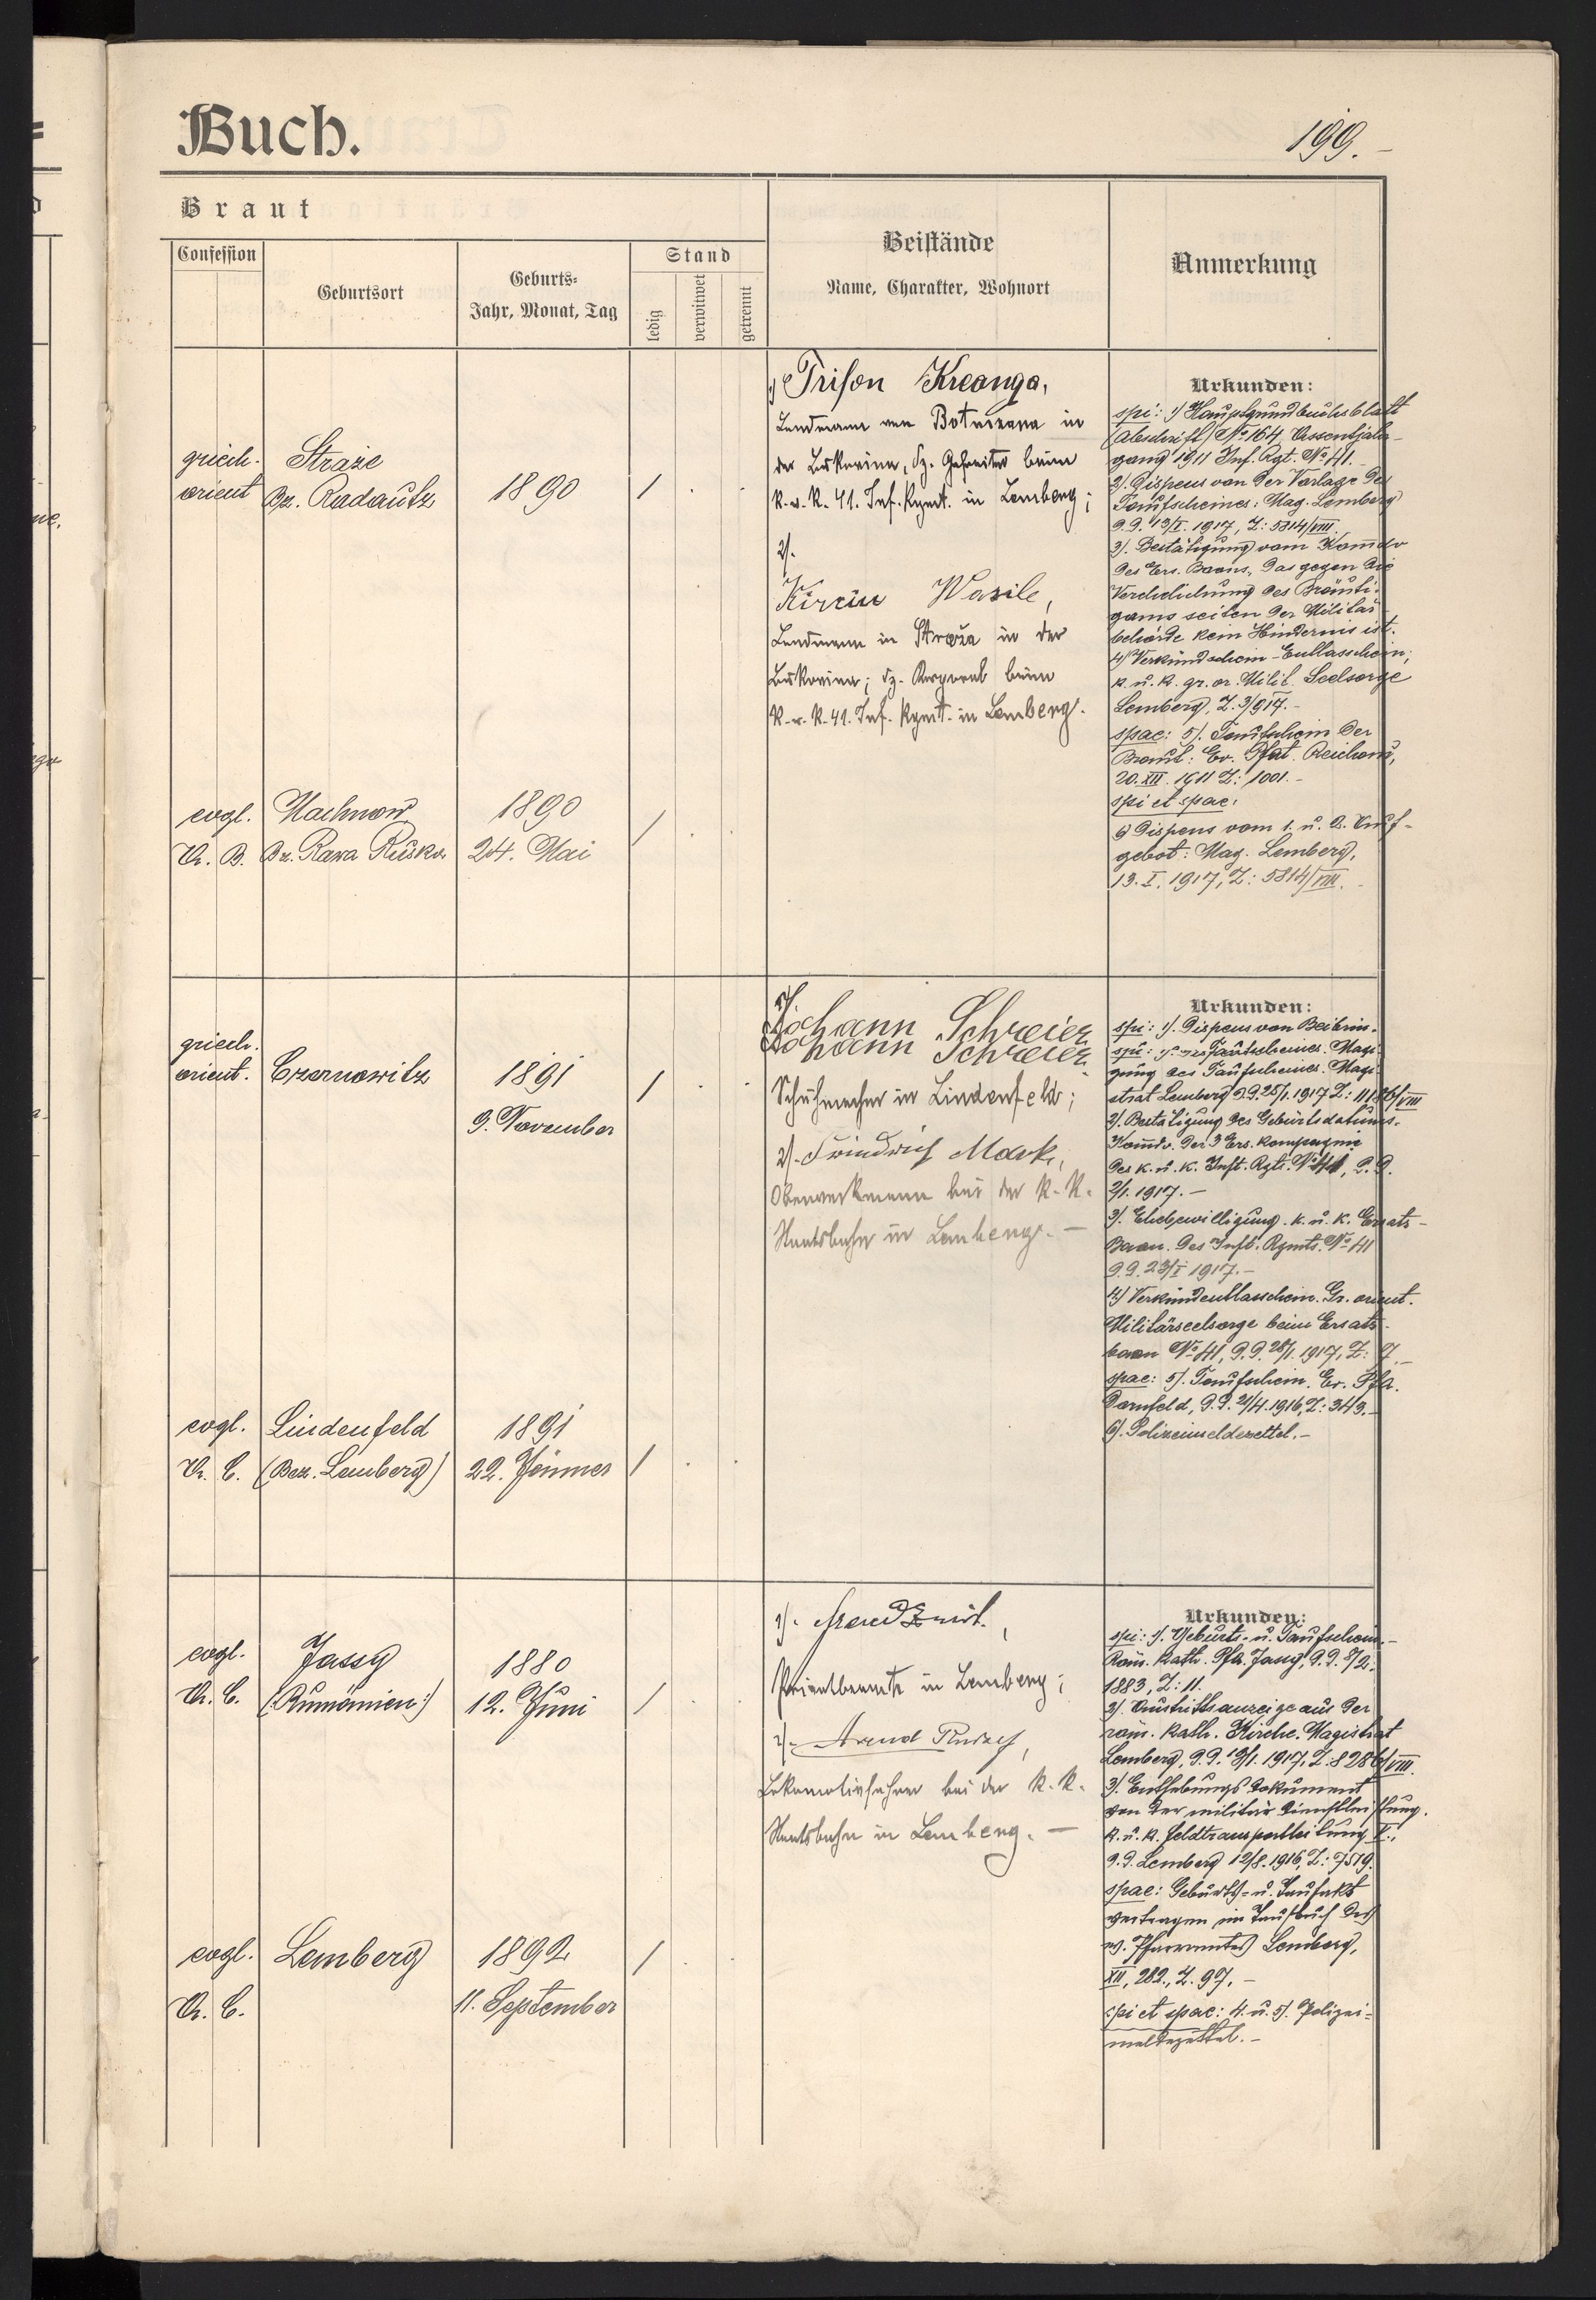 Buch.
199.
Braut
Confession
Geburtsort
Geburts-
Jahr, Monat, Tag
Stand
ledig
verwitwet
getrennt
Beistände
Name, Charakter, Wohnort
Anmerkung
griech.
orient
Straże
Bz. Radautz
1890
/
1) Trifon Kreanga,
Landmann von in
der Bukovina, dz. Gefreiter beim
k. u. k. 41. Inf. Rgmt. in Lemberg;
2).
Wasile,
Landmann in Straża in der
Bukovina; dz. Korporal beim
k. u. k. 41. Inf. Rgmt. in Lemberg.
Urkunden:
spi: 1) Hauptgrundbuchsblatt
(Abschrift) No 164, Assentjahr-
gang 1911 Inf. Rgt. No 41.
2). Dispens von der Vorlage des
Taufscheines: Mag. Lemberg
d.d. 13/I. 1917, Z: 5814/VIII.
3). Bestätigung vom Komdo
des Ers. Baons, das gegen die
Verehelichung des Bräuti-
gams seiten der Militär-
behörde kein Hindernis ist.
4) Verkündschein-Entlasschein;
k. u. k. gr. or. Milit. Seelsorge
Lemberg, Z. 3/917.-
spac: 5). Taufschein der
Braut: Ev. Pfat.
20. XII. 1911 Z: 1001.-
spi et spac:
6) Dispens vom 1. u. 2. Auf-
gebot: Mag. Lemberg,
13. I. 1917, Z: 5814/VIII.
evgl.
A. B.
Machnow
Bz. Rawa Ruska
1890
24. Mai
/
griech.
orient.
Czernowitz
1891
9. November
/
1).
Johann Schreier
Johann Schreier
Schuhmacher in Lindenfeld;
2). Friedrich Mark,
Oberwerkmann bei der k. k.
Staatsbahn in Lemberg. —
Urkunden:
spi: 1). Dispens von Beibrin-
gung des Taufscheines. Magi-
strat Lemberg d.d. 25/1. 1917 Z: 11186/VIII
2). Bestätigung des Geburtsdatums.
Komdo. der 3 Ers. kompagnie
des k. u. k. Inft. Rgts. No 41, d.d.
2/1. 1917.-
3). Ehebewilligung. k. u. k. Ersatz-
Baon. des Inft. Rgmts. No 41
d.d. 23/I 1917.-
4) Verkündentlasschein. Gr. orient.
Militärseelsorge beim Ersatz-
baon No 41, d.d. 28/1. 1917, Z: 7.-
spac: 5). Taufschein. Ev. Pfa.
Dornfeld, d.d. 21/4. 1916, Z: 343.-
6). Polizeimeldezettel.-
evgl.
A. C.
Lindenfeld
(Bez. Lemberg)
1891
22. Jänner
/
evgl.
A. C.
Jassy
(Rumänien:)
1880
12. Juni
/
1).
Privatbeamte in Lemberg;
2).- Arend Rudolf,
Lokomotivführer bei der k. k.
Staatsbahn in Lemberg. —
Urkunden:
spi: 1). Geburts- u. Taufschein.-
Röm. kath. Pfa. Jassy, d.d. 8/2.
1883, Z: 11.
2). Austrittsanzeige aus der
röm. kath. Kirche. Magistrat
Lemberg, d.d. 19/1. 1917, Z: 8286/VIII.
3). Enthebungsdokument
von der militär Dienstleistung.
k. u. k. Feldtransportleitung V.,
d.d. Lemberg 12/8. 1916, Z: 7579.
spac: Geburts- u. Taufakt
vertragen im Taufbuch des
ev. Pfarramtes Lemberg,
XII, 282., Z. 97.-
spi et spac: 4. u. 5). Polizei-
meldezettel.-
evgl.
A. C.
Lemberg
1892
11. September
/